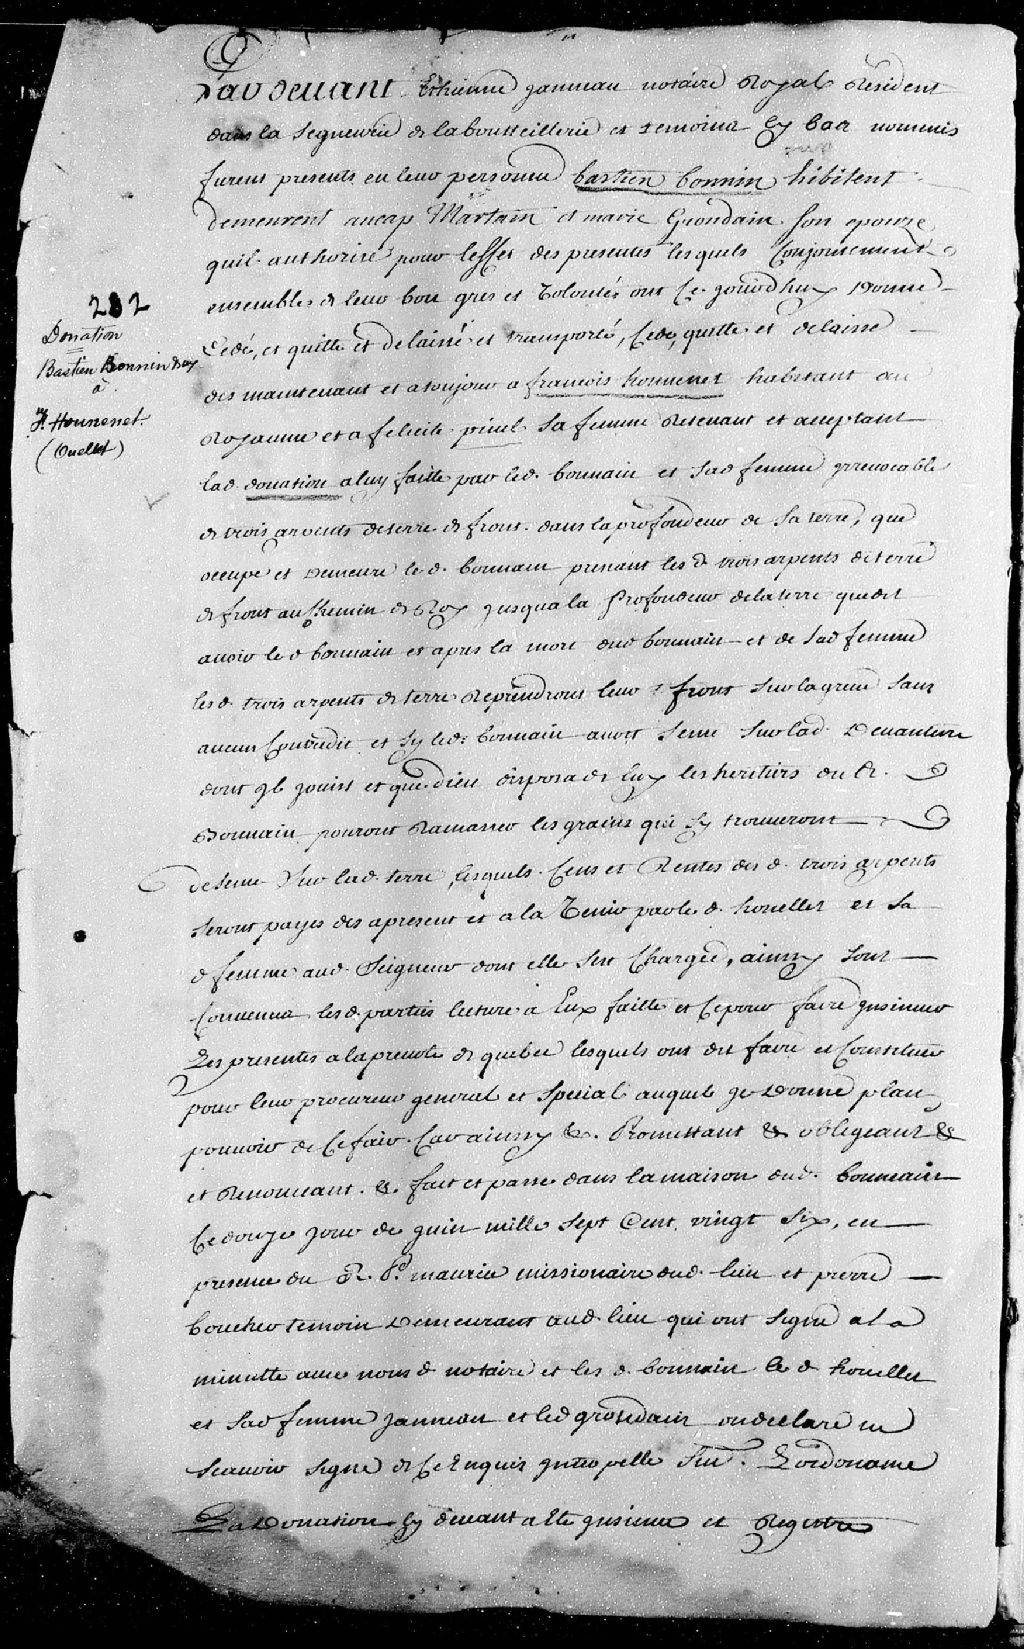 Pardevant Ethienne Janneau notaire Royal Résident
dans la Segneurie de la bouteillerie et temoins cy bas nommés
furent presents en leur personne bastien bonnin hibitent
demeurent au cap Martain et marie Grondain son epouze
quil authorise pour leffet des presentes lesquels Conjointement
ensembles de leur bon gres et Volontés ont Ce jourdhuy Donné
Cedé, et quitté et delaissé et transporté, Cede, quitte et delaisse
des maintenant et a toujour a francois houuenet habitant au
Royaume et a felicité pinel Sa femme Retenant et aceptant
lad. donation a luy faitte par led. bonnain et Sad femme yrrevocable
de trois arpents de terre de front dans la profondeur de Sa terre, que
occupe et Demeure le d. bonnain prenant les d. trois arpents de terre
de front au Chemin du Roy jusqua la Profondeur de la terre quedit
avoir le d bonnain et apres la mort dud bonnain et de Sad femme
les d. trois arpents de terre Reprendrons leur front Sur la greve Sans
aucun Contredit et Sy led. bonnain avoit Semé Sur lad. Devanture
dont yl jouist et que dieu disposa de luy les heritiers du d.
Bonnain pouront Ramasser les grains qui Sy trouveront
de Semé Sur lad. terre, lesquels Cens et Rentes des d. trois arpents
Seront payes des apresent et a la Venir par le d. houellet et Sa
d femme aud. Seigneur dont elle Sen Chargée, ainsy Sont
Convenus les d. parties lecture a Eux faitte et Ce pour faire ynsinuer
Les presentes a la prevoté de quebec lesquels ont dit faire et Constituer
pour leur procureur general et Special auquel ... Donné plain
pouvoir de Ce faire. Car ainsy &. Promettant & obligeant &
et Renoncant. &. fait et passé dans la maison dud. bonnain
Ce douze jour de juin mille Sept Cent vingt Six, en
presence du R. P. maurice missionaire dud. lieu et pierre
boucher temoin Demeurant aud. lieu qui ont Signé a la
minutte avec nous d. notaire et les d. bonnain le d. houellet
et Sad femme Janneau et led grondain on declaré ne
Scavoir Signé de Ce Enquis ynterpellé Suiv. Lordonance
La Donation Cy devant a Eté ynsinué et Registré
282
Donation
Bastien Bonnin
à
F. Houuenet
(Ouellet)